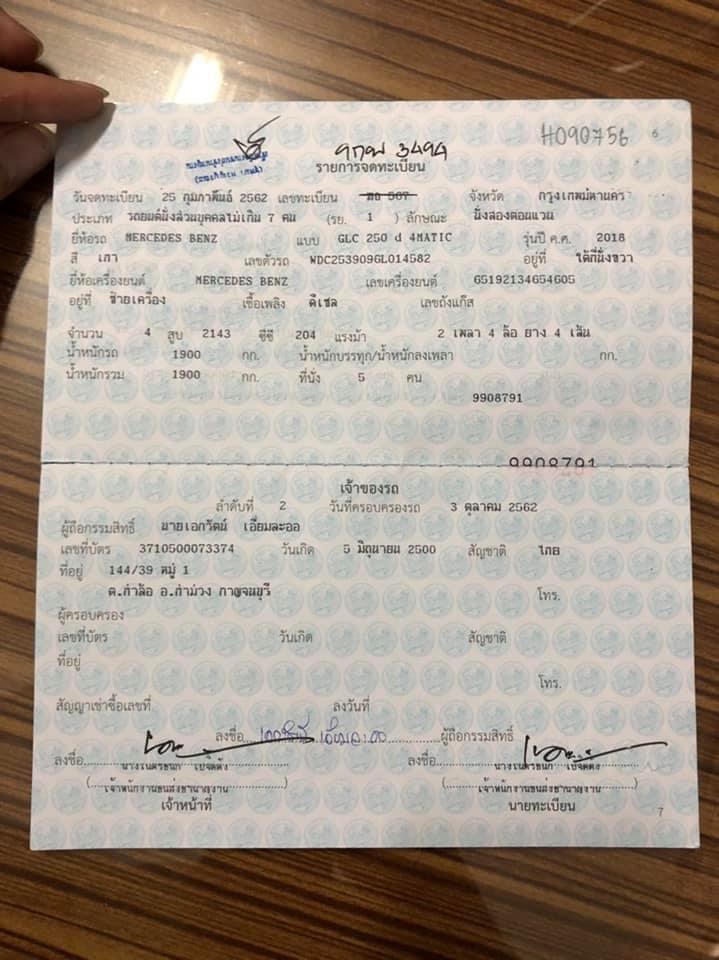 H090756 6
รายการจดทะเบียน
วันจดทะเบียน 25 กุมภาพันธ์ 2562 เลขทะเบียน 567 จังหวัด กรุงเทพมหานคร
ประเภท รถยนต์นั่งส่วนบุคคลไม่เกิน 7 คน (รย. 1 ) ลักษณะ นั่งสองตอนแวน
ยี่ห้อรถ MERCEDES BENZ แบบ GLC 250 d 4MATIC รุ่นปี ค.ศ. 2018
สี เทา เลขตัวรถ WDC2539096L014582 อยู่ที่ ใต้ที่นั่งขวา
ยี่ห้อเครื่องยนต์ MERCEDES BENZ เลขเครื่องยนต์ 65192134654605
อยู่ที่ ซ้ายเครื่อง เชื้อเพลิง ดีเซล เลขถังแก๊ส
จำนวน 4 สูบ 2143 ซีซี 204 แรงม้า 2 เพลา 4 ล้อ ยาง 4 เส้น
น้ำหนักรถ 1900 กก. น้ำหนักบรรทุก/น้ำหนักลงเพลา กก.
น้ำหนักรวม 1900 กก. ที่นั่ง 5 คน
9908791
9908791
เจ้าของรถ
ลำดับที่ 2 วันที่ครอบครองรถ 3 ตุลาคม 2562
ผู้ถือกรรมสิทธิ์ นายเอกวัตน์ เอี่ยมละออ
เลขที่บัตร 3710500073374 วันเกิด 5 มิถุนายน 2500 สัญชาติ ไทย
ที่อยู่ 144/39 หมู่ 1
ต.ท่าล้อ อ.ท่าม่วง กาญจนบุรี โทร.
ผู้ครอบครอง
เลขที่บัตร วันเกิด สัญชาติ
ที่อยู่
โทร.
สัญญาเช่าซื้อเลขที่ ลงวันที่
ลงชื่อ ผู้ถือกรรมสิทธิ์
ลงชื่อ ลงชื่อ
(เจ้าพนักงานขนส่งชำนาญงาน) (เจ้าพนักงานขนส่งชำนาญงาน)
เจ้าหน้าที่ นายทะเบียน
7